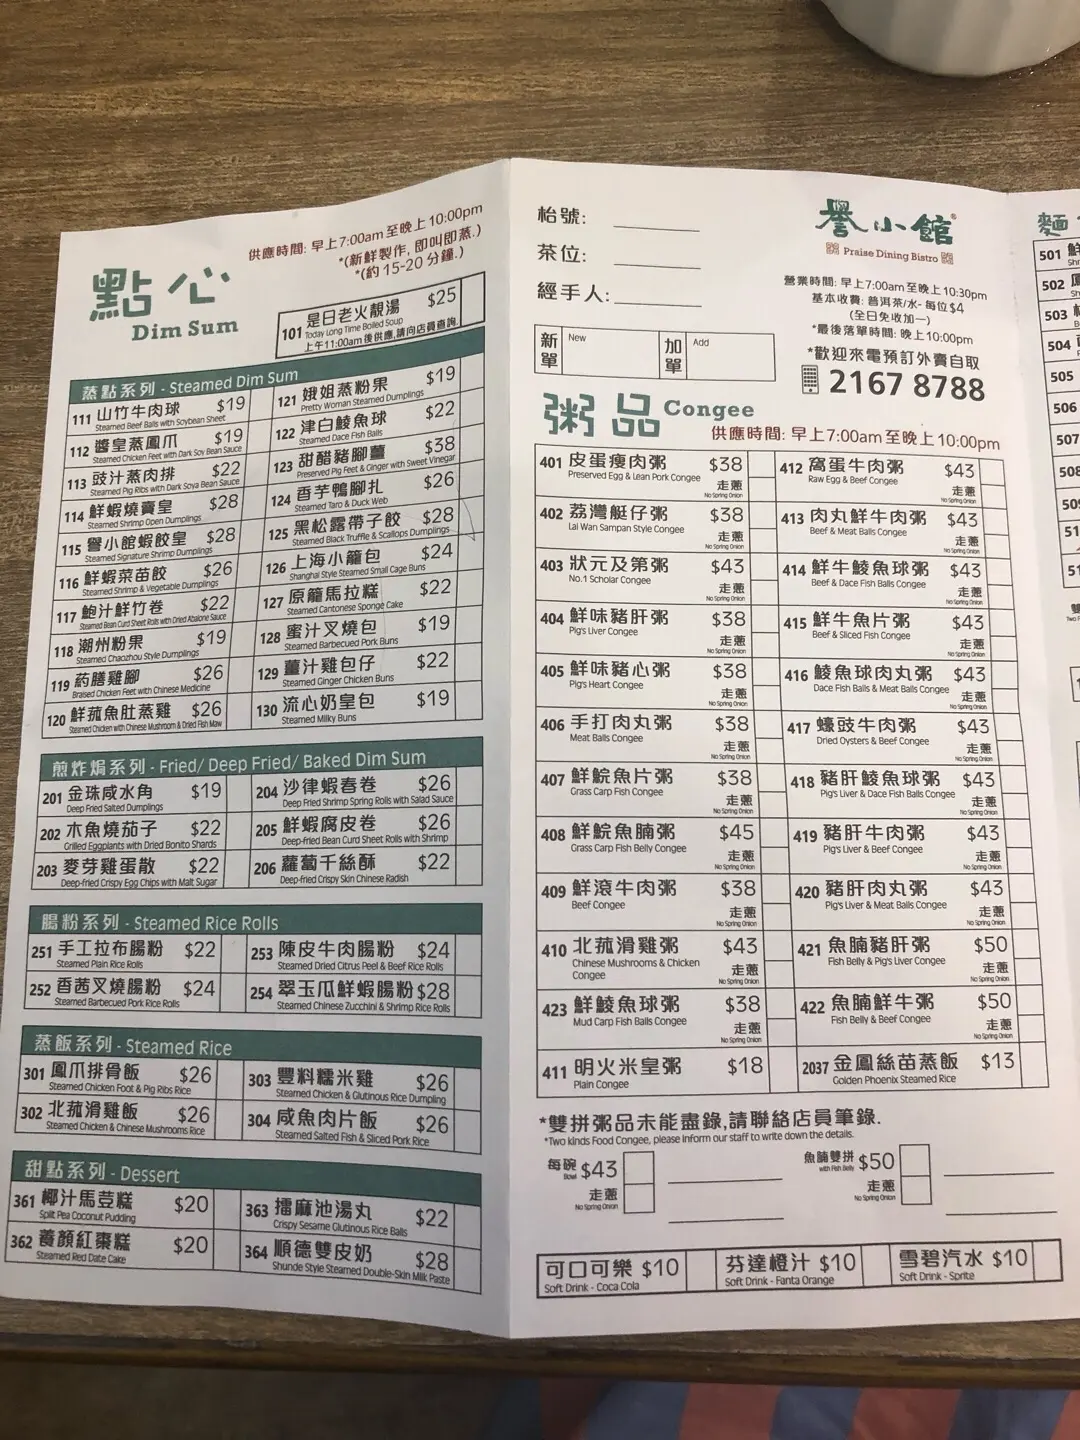 點心
Dim Sum
供應時間: 早上7:00am至晚上10:00pm
*(新鮮製作, 即叫即蒸.)
*(約 15-20 分鐘.)
101 是日老火靚湯 $25
Today Long Time Boiled Soup
上午11:00am後供應,請向店員查詢
蒸點系列 - Steamed Dim Sum
111 山竹牛肉球 $19
Steamed Beef Balls with Soybean Sheet
112 醬皇蒸鳳爪 $19
Steamed Chicken Feet with Dark Soy Bean Sauce
113 豉汁蒸肉排 $22
Steamed Pig Ribs with Dark Soya Bean Sauce
114 鮮蝦燒賣皇 $28
Steamed Shrimp Open Dumplings
115 譽小館蝦餃皇 $28
Steamed Signature Shrimp Dumplings
116 鮮蝦菜苗餃 $26
Steamed Shrimp & Vegetable Dumplings
117 鮑汁鮮竹卷 $22
Steamed Bean Curd Sheet Rolls with Dried Abalone Sauce
118 潮州粉果 $19
Steamed Chaozhou Style Dumplings
119 葯膳雞腳 $26
Braised Chicken Feet with Chinese Medicine
120 鮮菰魚肚蒸雞 $26
Steamed Chicken with Chinese Mushroom & Dried Fish Maw
121 娥姐蒸粉果 $19
Pretty Woman Steamed Dumplings
122 津白鯪魚球 $22
Steamed Dace Fish Balls
123 甜醋豬腳薑 $38
Preserved Pig Feet & Ginger with Sweet Vinegar
124 香芋鴨腳扎 $26
Steamed Taro & Duck Web
125 黑松露帶子餃 $28
Steamed Black Truffle & Scallops Dumplings
126 上海小籠包 $24
Shanghai Style Steamed Small Cage Buns
127 原籠馬拉糕 $22
Steamed Cantonese Sponge Cake
128 蜜汁叉燒包 $19
Steamed Barbecued Pork Buns
129 薑汁雞包仔 $22
Steamed Ginger Chicken Buns
130 流心奶皇包 $19
Steamed Milky Buns
煎炸焗系列 - Fried/ Deep Fried/ Baked Dim Sum
201 金珠咸水角 $19
Deep Fried Salted Dumplings
202 木魚燒茄子 $22
Grilled Eggplants with Dried Bonito Shards
203 麥芽雞蛋散 $22
Deep-fried Crispy Egg Chips with Malt Sugar
204 沙律蝦春卷 $26
Deep Fried Shrimp Spring Rolls with Salad Sauce
205 鮮蝦腐皮卷 $26
Deep-fried Bean Curd Sheet Rolls with Shrimp
206 蘿蔔千絲酥 $22
Deep-fried Crispy Skin Chinese Radish
腸粉系列 - Steamed Rice Rolls
251 手工拉布腸粉 $22
Steamed Plain Rice Rolls
252 香茜叉燒腸粉 $24
Steamed Barbecued Pork Rice Rolls
253 陳皮牛肉腸粉 $24
Steamed Dried Citrus Peel & Beef Rice Rolls
254 翠玉瓜鮮蝦腸粉 $28
Steamed Chinese Zucchini & Shrimp Rice Rolls
蒸飯系列 - Steamed Rice
301 鳳爪排骨飯 $26
Steamed Chicken Foot & Pig Ribs Rice
302 北菰滑雞飯 $26
Steamed Chicken & Chinese Mushrooms Rice
303 豐料糯米雞 $26
Steamed Chicken & Glutinous Rice Dumpling
304 咸魚肉片飯 $26
Steamed Salted Fish & Sliced Pork Rice
甜點系列 - Dessert
361 椰汁馬荳糕 $20
Split Pea Coconut Pudding
362 養顏紅棗糕 $20
Steamed Red Date Cake
363 擂麻池湯丸 $22
Crispy Sesame Glutinous Rice Balls
364 順德雙皮奶 $28
Shunde Style Steamed Double-Skin Milk Paste
枱號:
茶位:
經手人:
新單 New
加單 Add
譽小館®
Praise Dining Bistro
營業時間: 早上7:00am至晚上10:30pm
基本收費: 普洱茶/水- 每位$4
(全日免收加一)
*最後落單時間: 晚上10:00pm
*歡迎來電預訂外賣自取
2167 8788
粥品 Congee
供應時間: 早上7:00am至晚上10:00pm
401 皮蛋瘦肉粥 $38
Preserved Egg & Lean Pork Congee
走蔥
No Spring Onion
402 荔灣艇仔粥 $38
Lai Wan Sampan Style Congee
走蔥
No Spring Onion
403 狀元及第粥 $43
No.1 Scholar Congee
走蔥
No Spring Onion
404 鮮味豬肝粥 $38
Pig's Liver Congee
走蔥
No Spring Onion
405 鮮味豬心粥 $38
Pig's Heart Congee
走蔥
No Spring Onion
406 手打肉丸粥 $38
Meat Balls Congee
走蔥
No Spring Onion
407 鮮鯇魚片粥 $38
Grass Carp Fish Congee
走蔥
No Spring Onion
408 鮮鯇魚腩粥 $45
Grass Carp Fish Belly Congee
走蔥
No Spring Onion
409 鮮滾牛肉粥 $38
Beef Congee
走蔥
No Spring Onion
410 北菰滑雞粥 $43
Chinese Mushrooms & Chicken
Congee
走蔥
No Spring Onion
423 鮮鯪魚球粥 $38
Mud Carp Fish Balls Congee
走蔥
No Spring Onion
411 明火米皇粥 $18
Plain Congee
412 窩蛋牛肉粥 $43
Raw Egg & Beef Congee
走蔥
No Spring Onion
413 肉丸鮮牛肉粥 $43
Beef & Meat Balls Congee
走蔥
No Spring Onion
414 鮮牛鯪魚球粥 $43
Beef & Dace Fish Balls Congee
走蔥
No Spring Onion
415 鮮牛魚片粥 $43
Beef & Sliced Fish Congee
走蔥
No Spring Onion
416 鯪魚球肉丸粥 $43
Dace Fish Balls & Meat Balls Congee
走蔥
No Spring Onion
417 蠔豉牛肉粥 $43
Dried Oysters & Beef Congee
走蔥
No Spring Onion
418 豬肝鯪魚球粥 $43
Pig's Liver & Dace Fish Balls Congee
走蔥
No Spring Onion
419 豬肝牛肉粥 $43
Pig's Liver & Beef Congee
走蔥
No Spring Onion
420 豬肝肉丸粥 $43
Pig's Liver & Meat Balls Congee
走蔥
No Spring Onion
421 魚腩豬肝粥 $50
Fish Belly & Pig's Liver Congee
走蔥
No Spring Onion
422 魚腩鮮牛粥 $50
Fish Belly & Beef Congee
走蔥
No Spring Onion
2037 金鳳絲苗蒸飯 $13
Golden Phoenix Steamed Rice
*雙拼粥品未能盡錄,請聯絡店員筆錄.
*Two kinds Food Congee, please inform our staff to write down the details.
每碗 $43
Bowl
走蔥
No Spring Onion
魚腩雙拼 $50
with Fish Belly
走蔥
No Spring Onion
可口可樂 $10
Soft Drink - Coca Cola
芬達橙汁 $10
Soft Drink - Fanta Orange
雪碧汽水 $10
Soft Drink - Sprite
麵
501 鮮
502
503
504
505
506
507
508